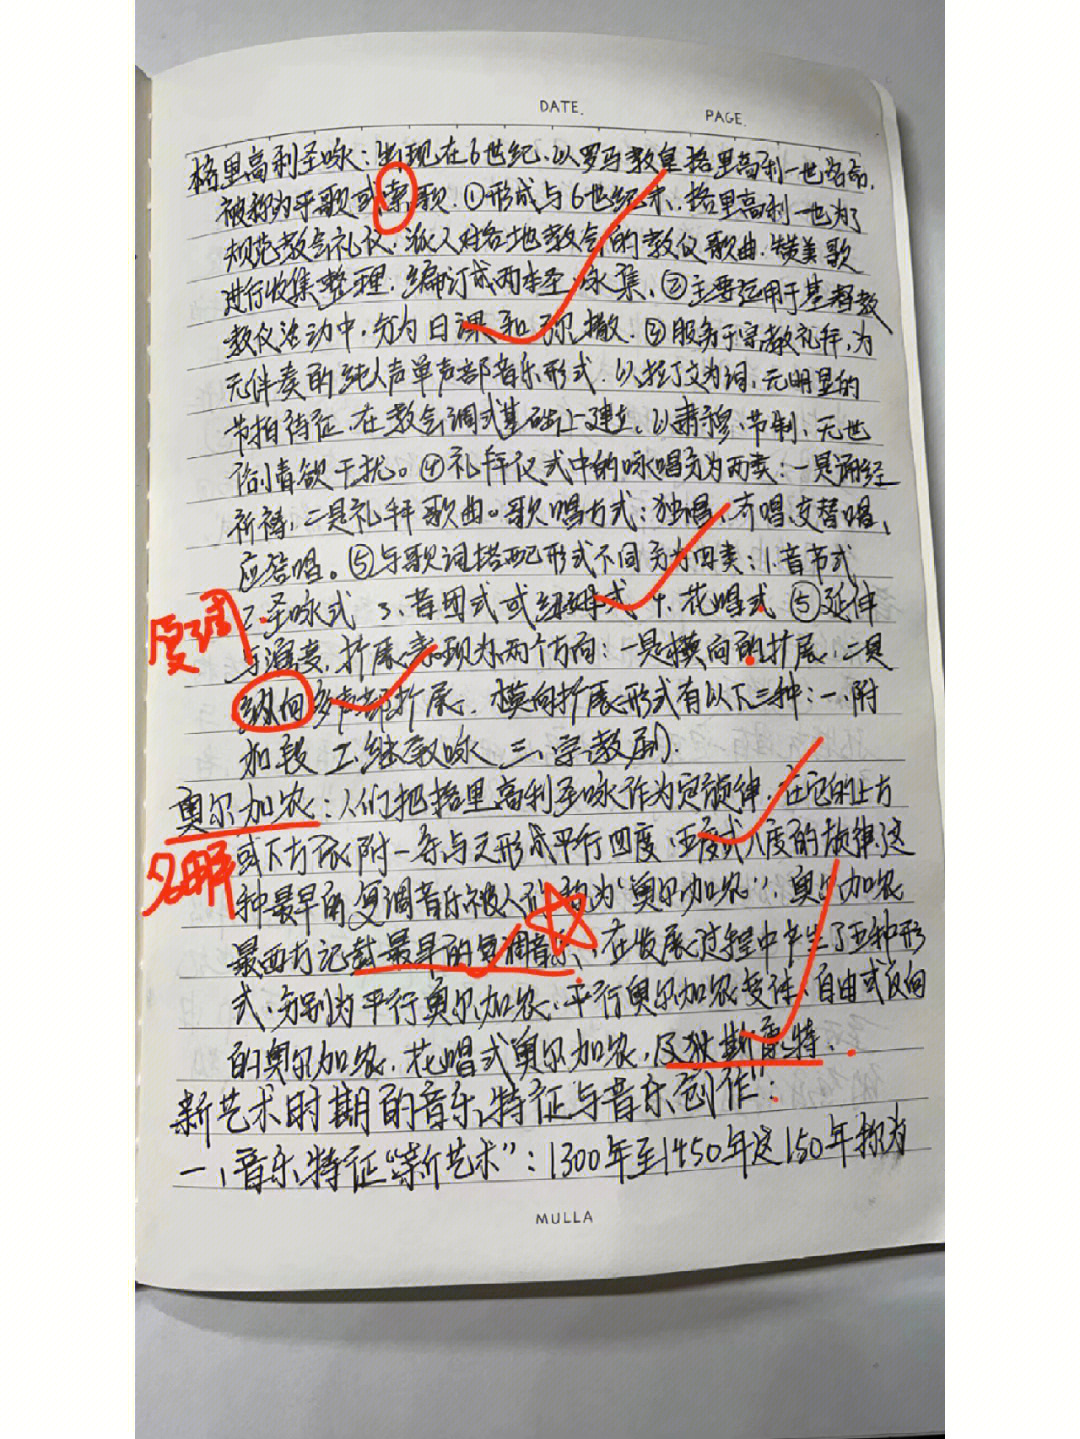 DATE.
PAGE.
格里高利圣咏：出现在6世纪.以罗马教皇格里高利一世名命,
被称为平歌或素歌.①形成与6世纪末.格里高利一世为了
规范教会礼仪.派人对各地教会的教仪歌曲.赞美歌
进行收集整理.编订成两本圣咏集.②主要运用于基督教
教仪活动中.分为日课和弥撒.③服务于宗教礼拜.为
无伴奏的纯人声单声部音乐形式.以拉丁文为词.无明显的
节拍特征.在教会调式基础上建立.以肃穆、节制、无世
俗情欲干扰。④礼拜仪式中的咏唱分为两类:一是诵经
祈祷,二是礼拜歌曲。歌唱方式:独唱、齐唱、交替唱、
应答唱。⑤与歌词搭配形式不同分为四类:1.音节式
2.圣咏式 3.音团式或纽姆式 4.花唱式 ⑤延伸
复调
与演变.扩展表现为两个方向:一是横向的扩展.二是
纵向多声部扩展. 横向扩展形式有以下三种:一、附
加段 二.继叙咏 三.宗教剧.
奥尔加农:人们把格里高利圣咏作为定旋律.在它的上方
名解
或下方依附一条与之形成平行四度、五度或八度的旋律.这
种最早的复调音乐被人们称为“奥尔加农”.奥尔加农
是西方记载最早的复调音乐.在发展过程中产生了五种形
式.分别为平行奥尔加农.平行奥尔加农变体、自由或反向
的奥尔加农.花唱式奥尔加农.及狄斯康特.
新艺术时期的音乐特征与音乐创作:
一、音乐特征“新艺术”:1300年至1450年这150年称为
MULLA